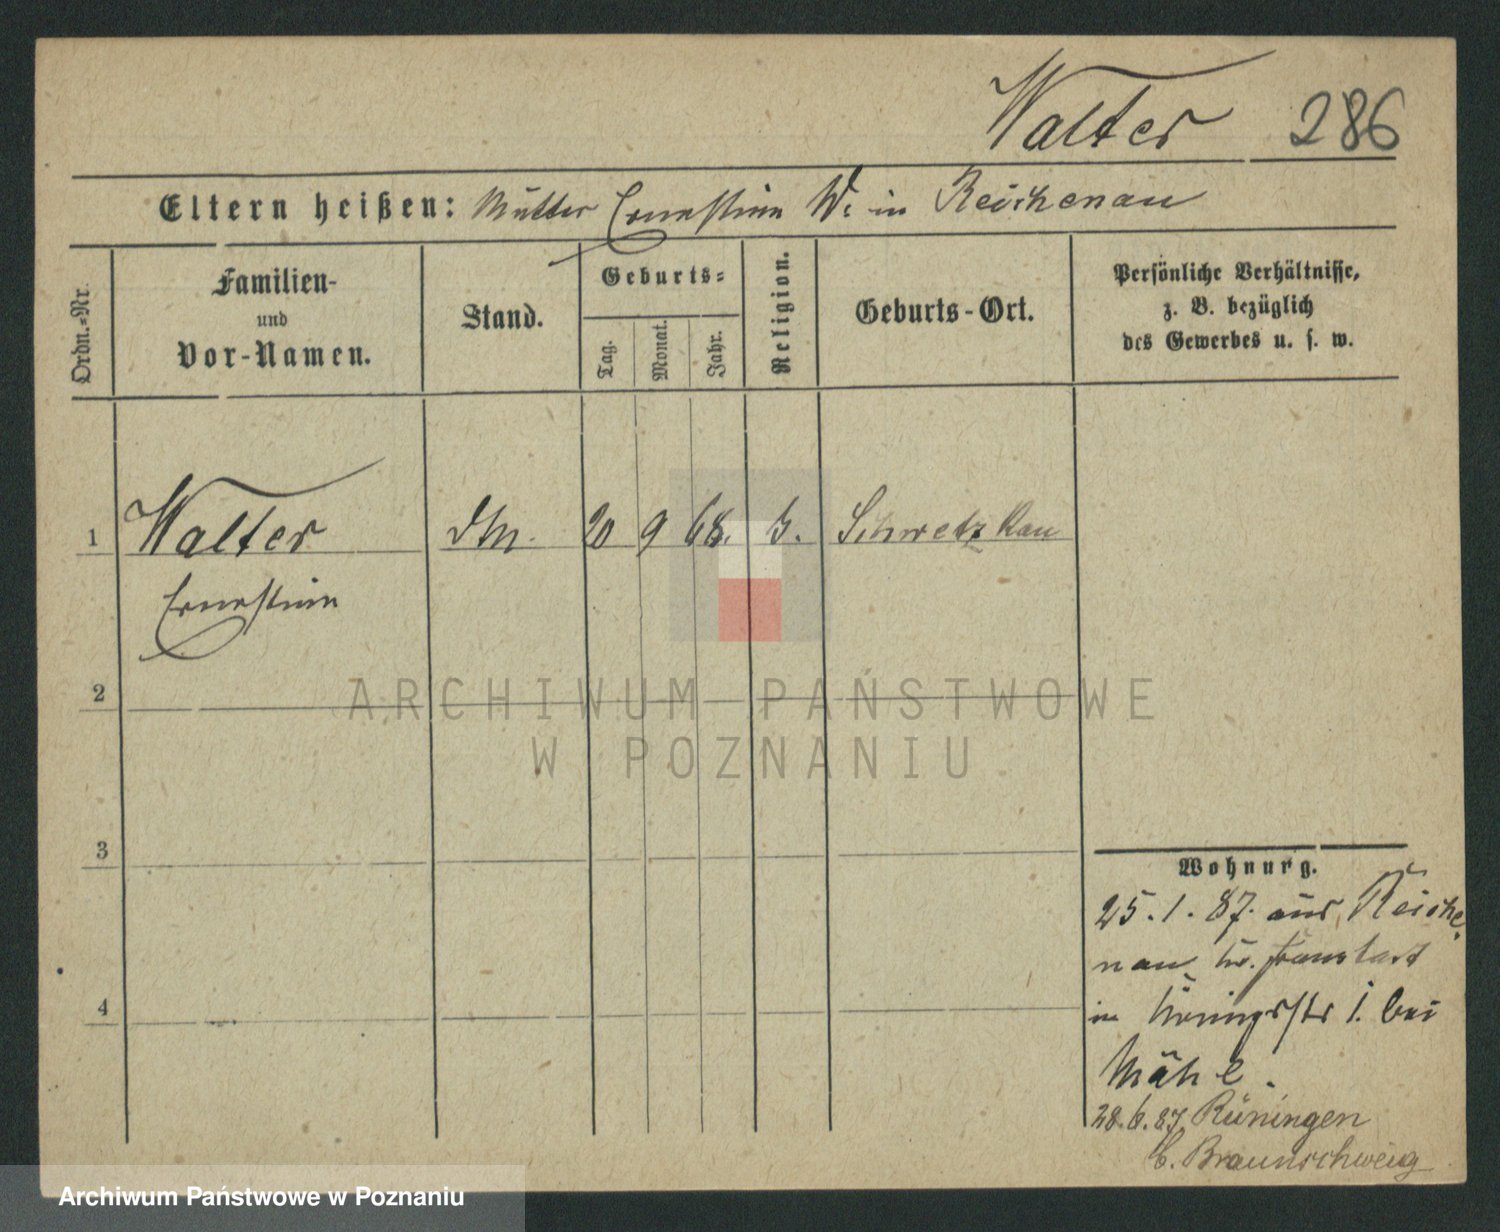 Walter 286
Eltern heißen: Mutter Ernestine W. in Reichenau
Ordn.-Nr.
Familien-
und
Vor-Namen.
Stand.
Geburts-
Tag.
Monat.
Jahr.
Religion.
Geburts-Ort.
Persönliche Verhältnisse,
z. B. bezüglich
des Gewerbes u. s. w.
1 Walter 20 9 68. Schwetzkau
Ernestine
2
3
4
Wohnung.
25. 1. 87. aus Reiche
nau Kr. Fraustadt
in Königsstr 1. bei
28. 6. 87. Rüningen
b. Braunschweig
ARCHIWUM PAŃSTWOWE
W POZNANIU
Archiwum Państwowe w Poznaniu